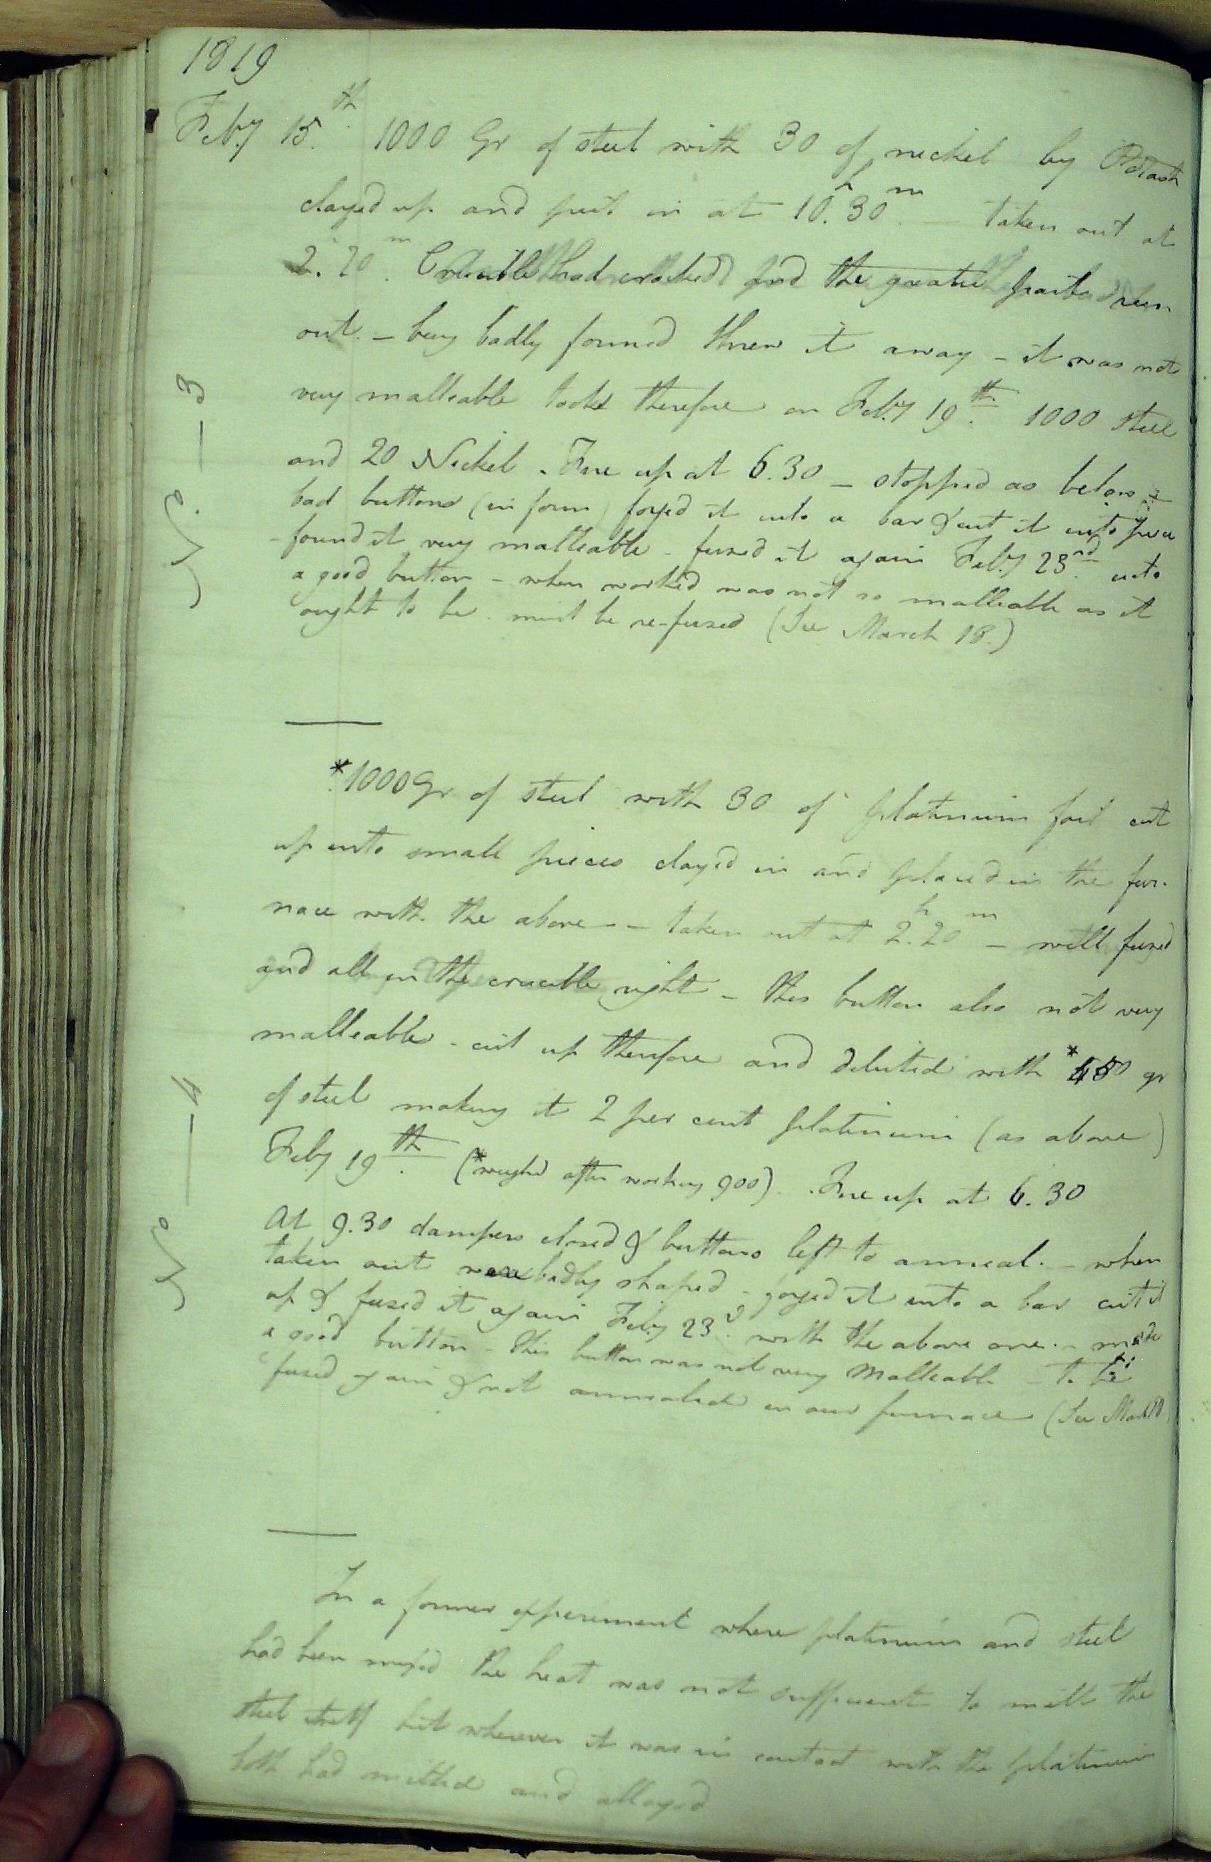 1819
Feby 15th. 1000 Gr of steel with 30 of nickel by Potash
clayed up and put in at 10h.30m. — taken out at
2.20m. Crucible had cracked and the greater part had run
out. – being badly formed threw it away – it was not
very malleable took therefore on Feby 19th. 1000 steel
and 20 Nickel. Fire up at 6.30 – stopped as below –
bad buttons (in form) forged it into a bar & cut it into pieces
- found it very malleable – fused it again Feby 23rd into
a good button – when worked was not so malleable as it
ought to be. must be re-fused (See March 18.)
No. — 3
*1000 Gr of steel with 30 of platinum foil cut
up into small pieces clayed in and placed in the fur-
nace with the above – – taken out at 2h.20m – well fused
and all in the crucible right – This button also not very
malleable – cut up therefore and diluted with *450 gr
of steel making it 2 per cent platinum (as above)
Feby 19th. (*weighed after working 900). Fire up at 6.30
At 9.30 dampers closed & buttons left to anneal. – when
taken out were badly shaped – forged it into a bar cut it
up & fused it again Feby 23d. with the above one. – made
a good button – This button was not very malleable – to be
fused again & not annealed in our furnace (See March 18)
No — 4
In a former experiment where platinum and steel
had been mixed the heat was not sufficient to melt the
steel itself but wherever it was in contact with the platinum
both had melted and alloyed